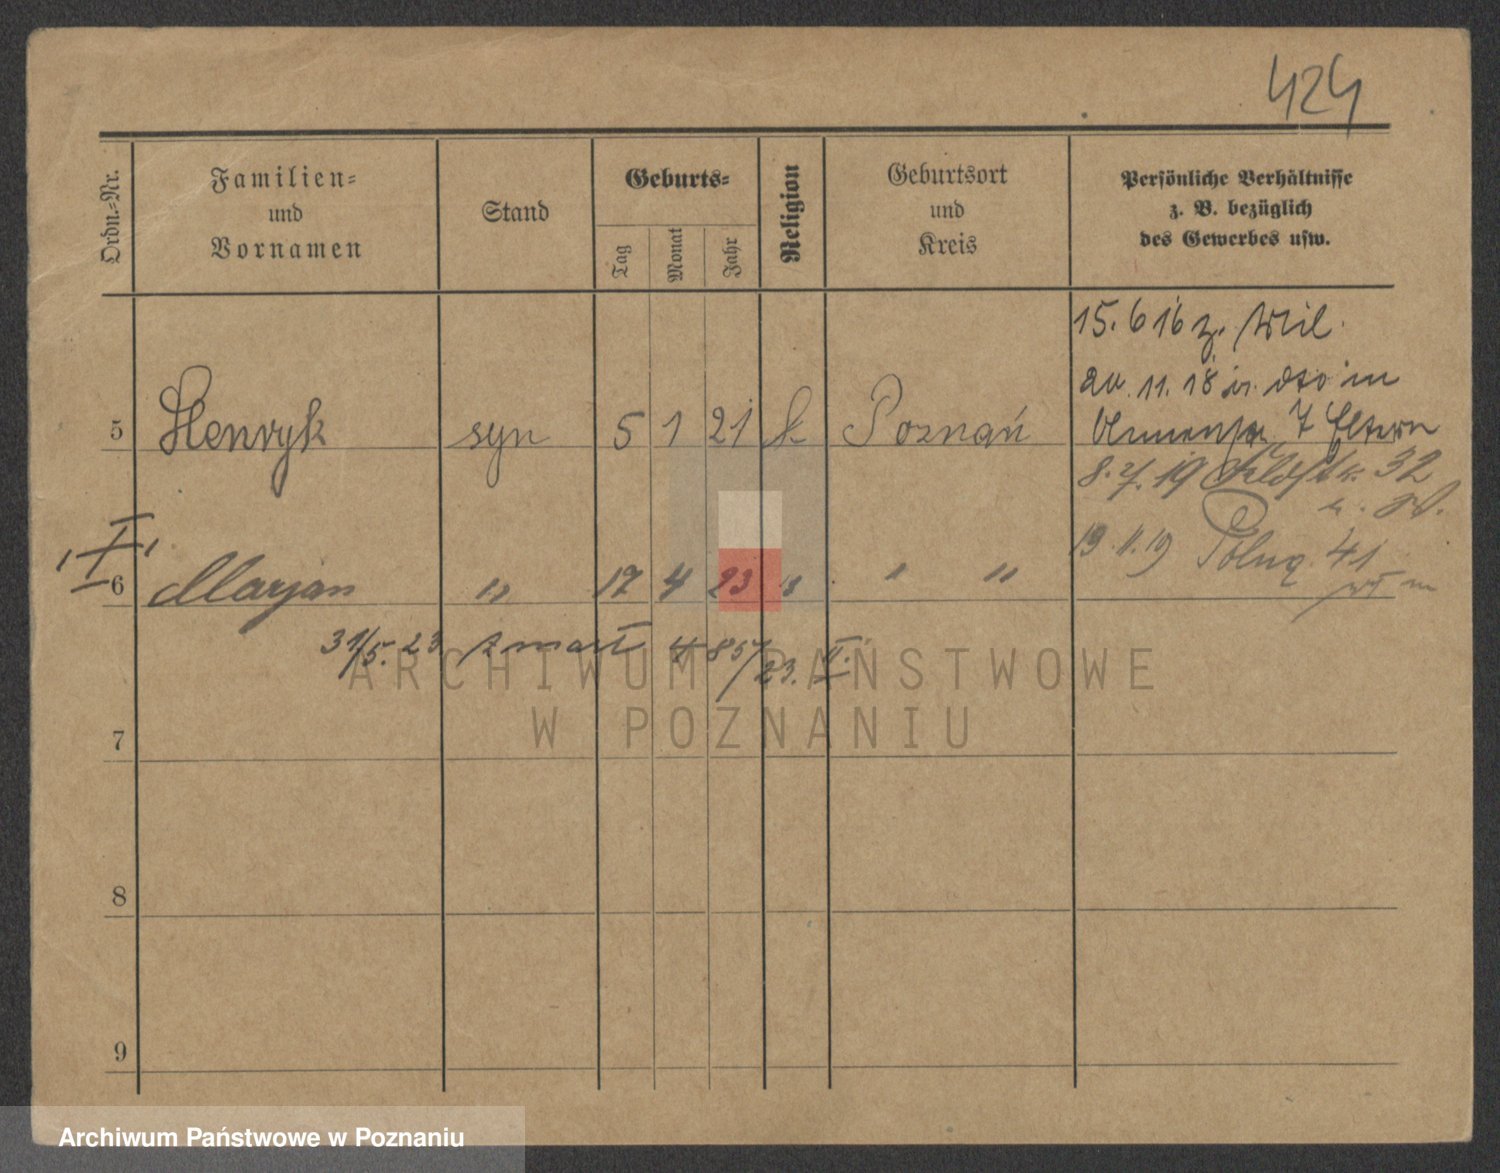 424
Ordn.-Nr.
Familien-
und
Vornamen
Stand
Geburts-
Tag
Monat
Jahr
Religion
Geburtsort
und
Kreis
Persönliche Verhältnisse
z. B. bezüglich
des Gewerbes usw.
15. 6 16 z. Mil.
11. 18 in
7 Eltern
5 Henryk syn 5 1 21 k Poznań
8. 7. 19 32
19. 11. 19 41
I
6 Marjan " 17 4 23 " " "
31/5. 23 zmarł 485/23. II.
ARCHIWUM PAŃSTWOWE
W POZNANIU
7
8
9
Archiwum Państwowe w Poznaniu